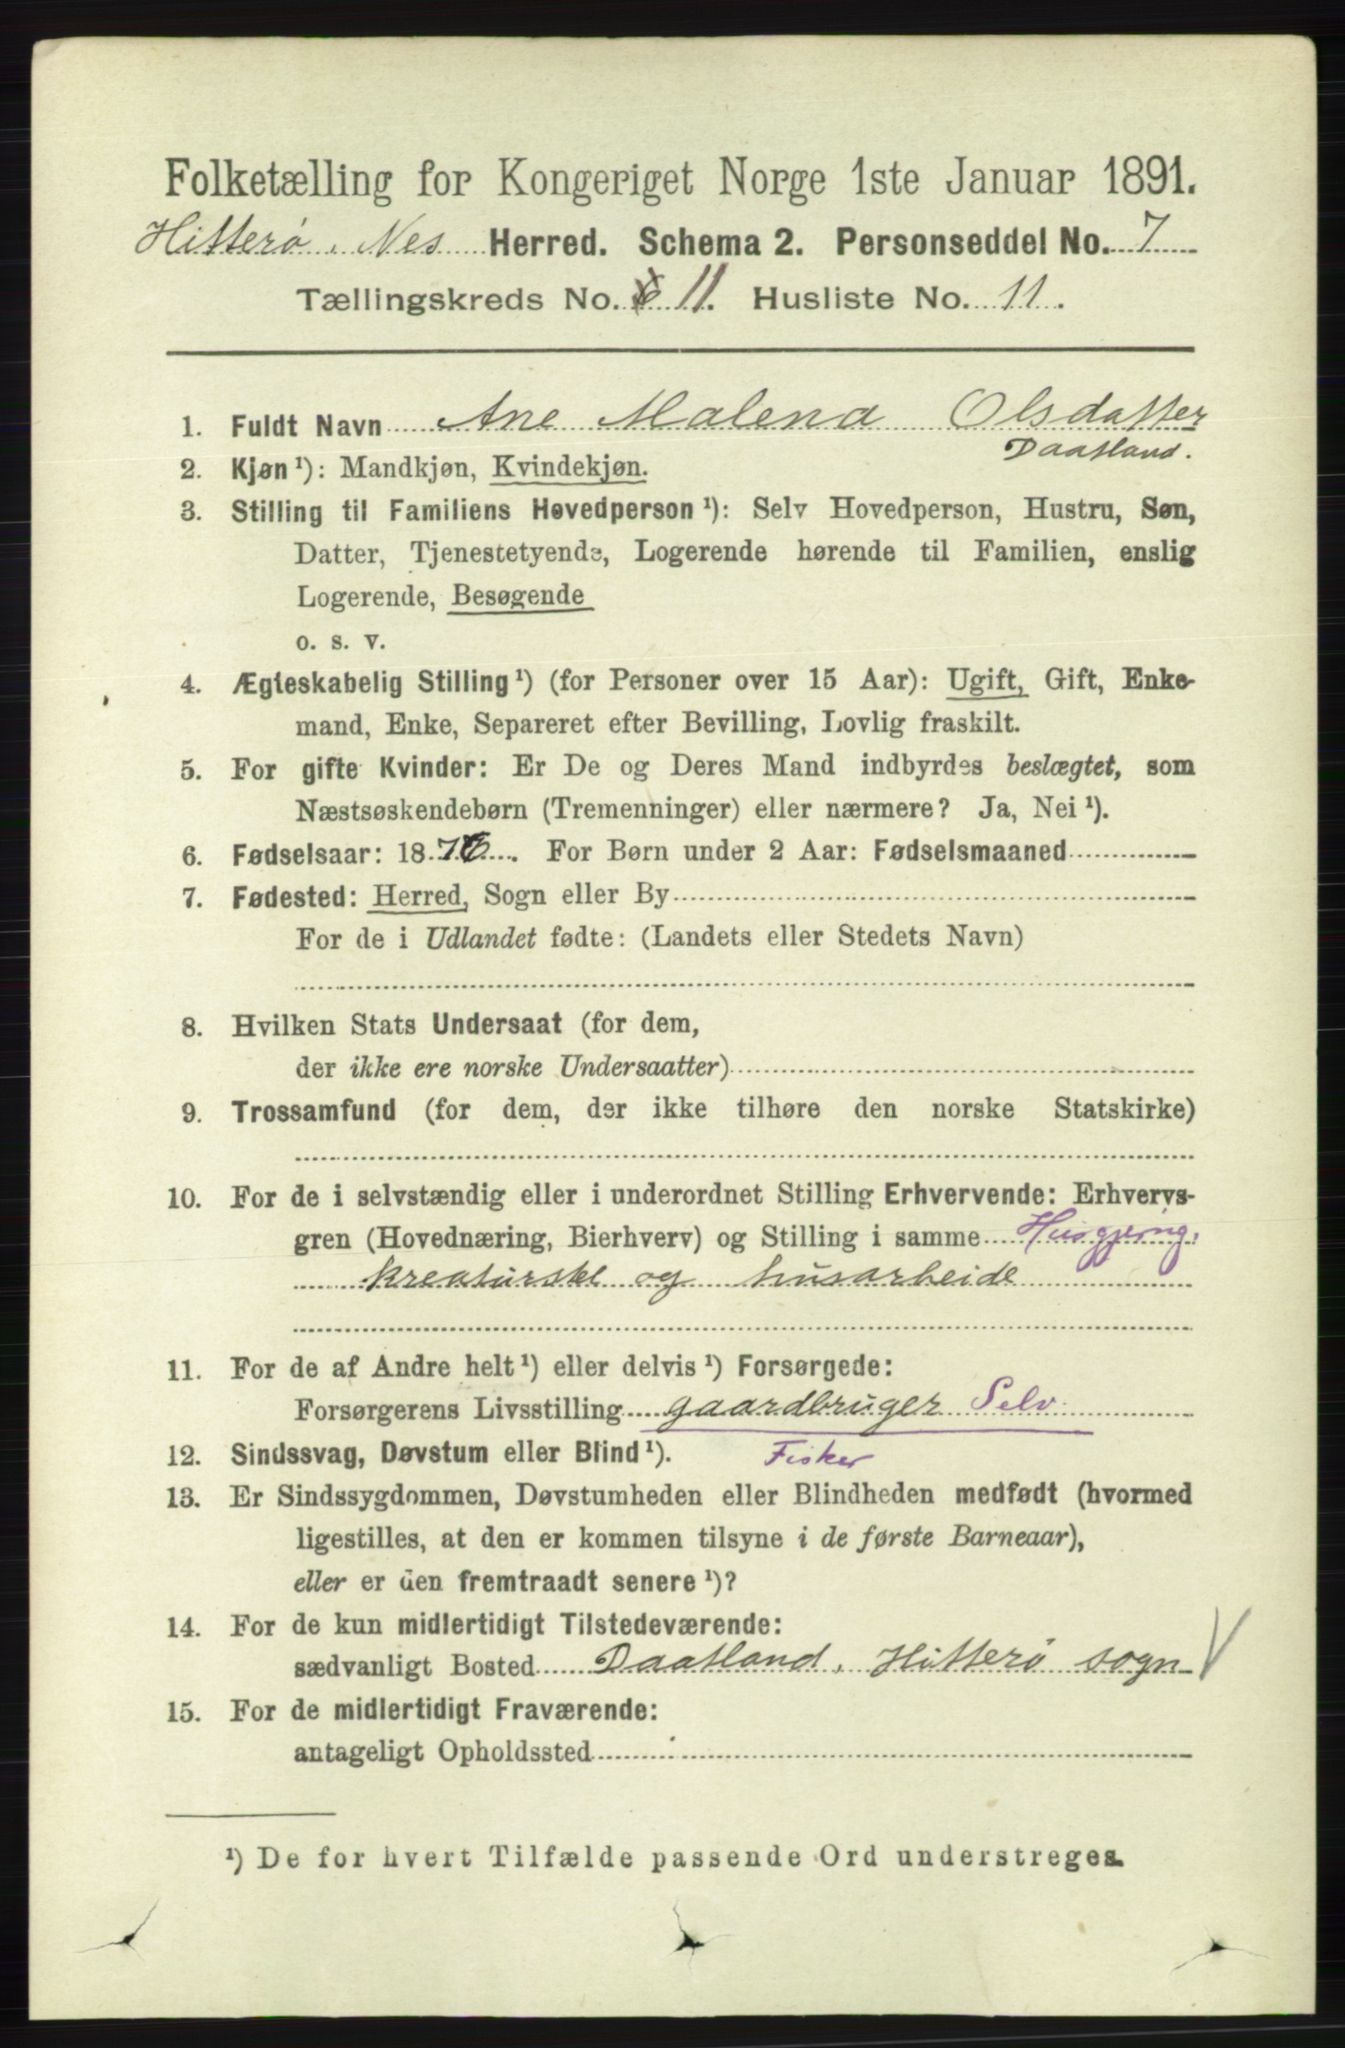 Folketælling for Kongeriget Norge 1ste Januar 1891.
Hitterø, Nes Herred. Schema 2. Personseddel No. 7
Tællingskreds No. 11. Husliste No. 11.
1. Fuldt Navn Ane Malena Olsdatter
Daatland.
2. Kjøn ¹): Mandkjøn, Kvindekjøn.
3. Stilling til Familiens Hovedperson ¹): Selv Hovedperson, Hustru, Søn,
Datter, Tjenestetyende, Logerende hørende til Familien, enslig
Logerende, Besøgende
o. s. v.
4. Ægteskabelig Stilling ¹) (for Personer over 15 Aar): Ugift, Gift, Enke-
mand, Enke, Separeret efter Bevilling, Lovlig fraskilt.
5. For gifte Kvinder: Er De og Deres Mand indbyrdes beslægtet, som
Næstsøskendebørn (Tremenninger) eller nærmere? Ja, Nei ¹).
6. Fødselsaar: 1876. For Børn under 2 Aar: Fødselsmaaned
7. Fødested: Herred, Sogn eller By
For de i Udlandet fødte: (Landets eller Stedets Navn)
8. Hvilken Stats Undersaat (for dem,
der ikke ere norske Undersaatter)
9. Trossamfund (for dem, der ikke tilhøre den norske Statskirke)
10. For de i selvstændig eller i underordnet Stilling Erhvervende: Erhvervs-
gren (Hovednæring, Bierhverv) og Stilling i samme Husgjerng,
kreaturstel og husarbeide
11. For de af Andre helt ¹) eller delvis ¹) Forsørgede:
Forsørgerens Livsstilling gaardbruger Selv
12. Sindssvag, Døvstum eller Blind ¹). Fisker
13. Er Sindssygdommen, Døvstumheden eller Blindheden medfødt (hvormed
ligestilles, at den er kommen tilsyne i de første Barneaar),
eller er den fremtraadt senere ¹)?
14. For de kun midlertidigt Tilstedeværende:
sædvanligt Bosted Daatland, Hitterø sogn
15. For de midlertidigt Fraværende:
antageligt Opholdssted
¹) De for hvert Tilfælde passende Ord understreges.